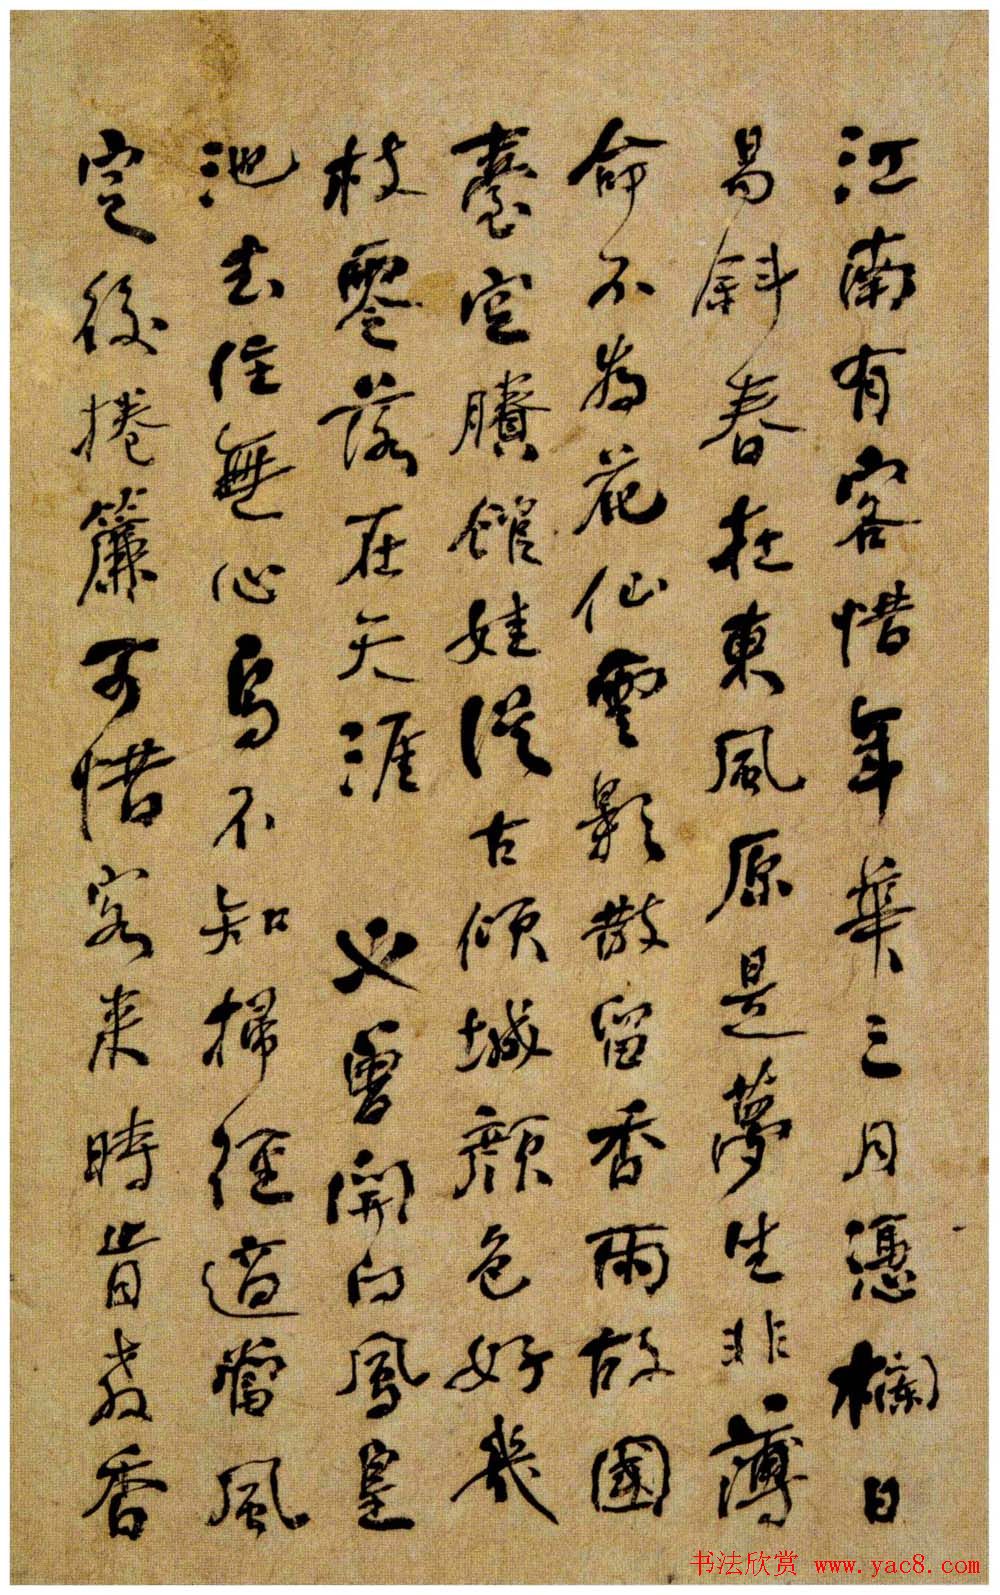 江南有客惜年華三月憑欄日
易斜春在東風原是夢生非薄
命不為花仙雲影散留香雨故國
臺空賸館娃從古傾城顏色好幾
枝零落在天涯 也曾開向鳳皇
池去住無心鳥不知掃徑適當風
定後捲簾可惜客來時肯教香
书法欣赏 www.yac8.com